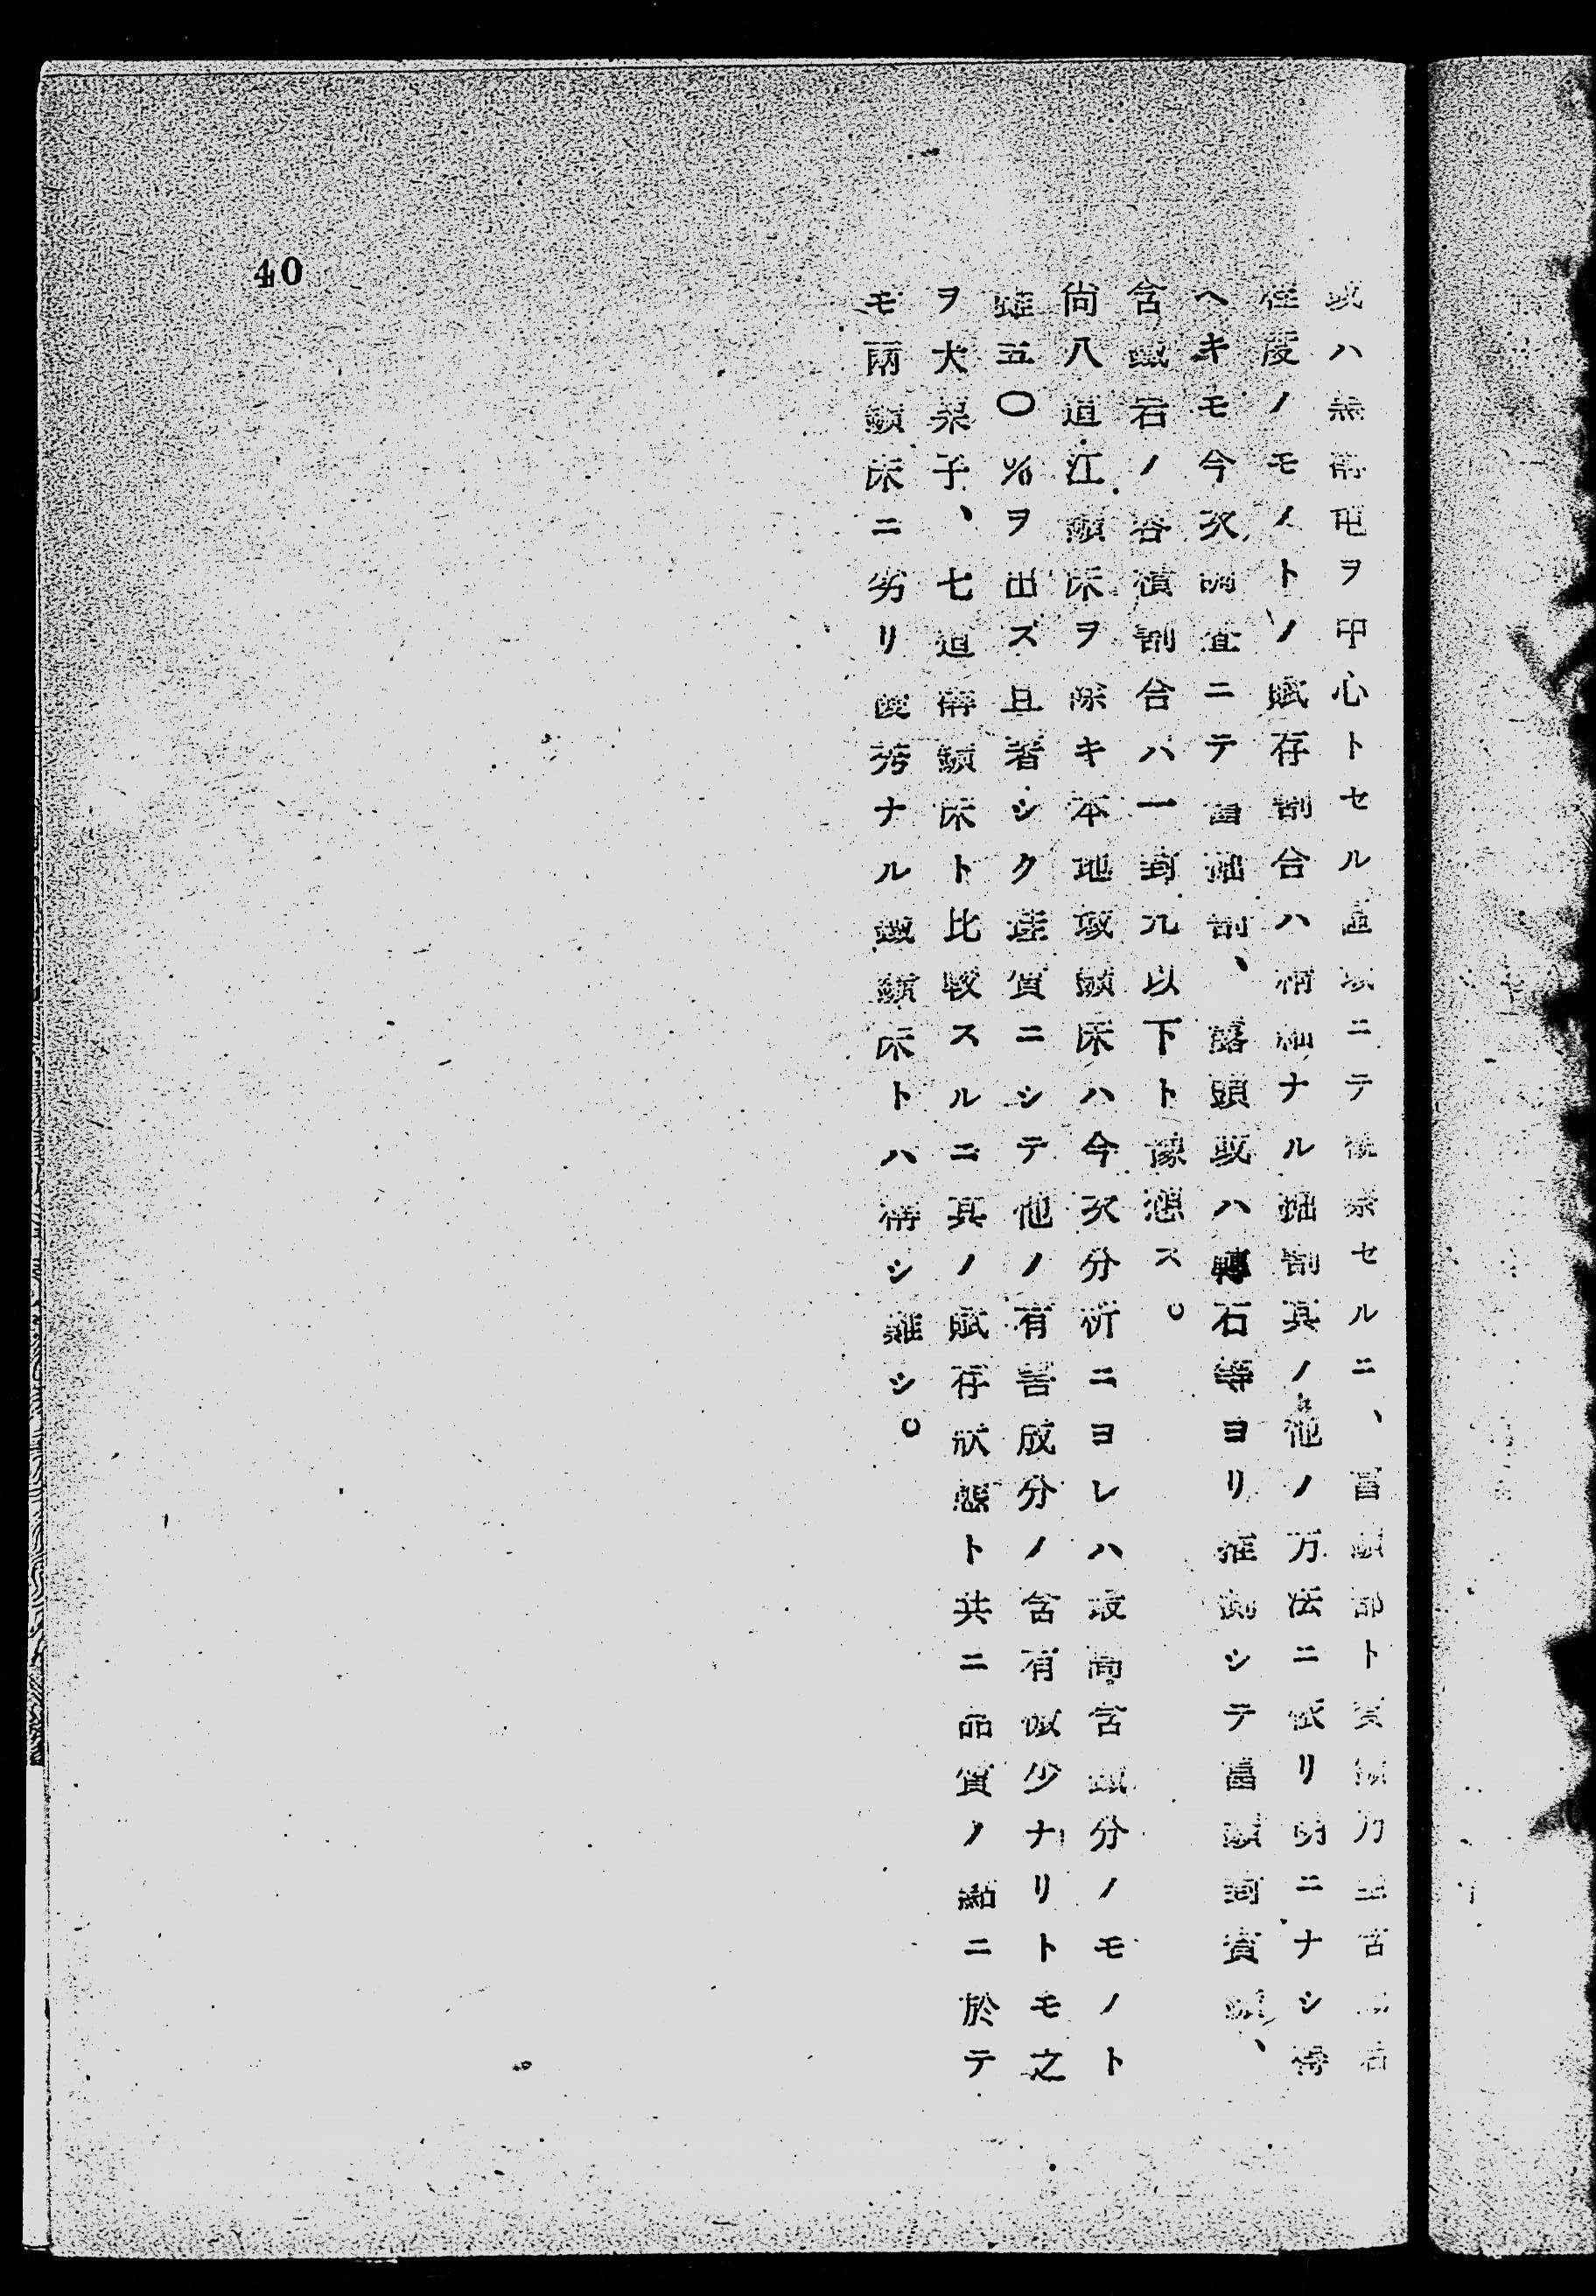 或ハ無溝屯ヲ中心トセル區域ニテ セルニ、富鑛部ト貧鑛乃至含鐵石
程度ノモノトノ賦存割合ハ精細ナル鑿割其ノ他ノ方法ニ依リ明ニナシ得
ヘキモ今次調査ニテ 舊鑿割、露頭或ハ轉石等ヨリ推測シテ富鑛對貧鑛、
含鐵石ノ容積割合ハ一對九以下ト豫想ス。
尙八道江鑛床ヲ除キ本地域鑛床ハ今次分析ニヨレハ最高含鐵分ノモノト
雖五〇%ヲ出ズ且著シク珪質ニシテ他ノ有害成分ノ含有微少ナリトモ之
ヲ大栗子、七道溝鑛床ト比較スルニ其ノ賦存狀態ト共ニ品質ノ點ニ於テ
モ兩鑛床ニ劣リ優秀ナル鐵鑛床トハ稱シ難シ。
40